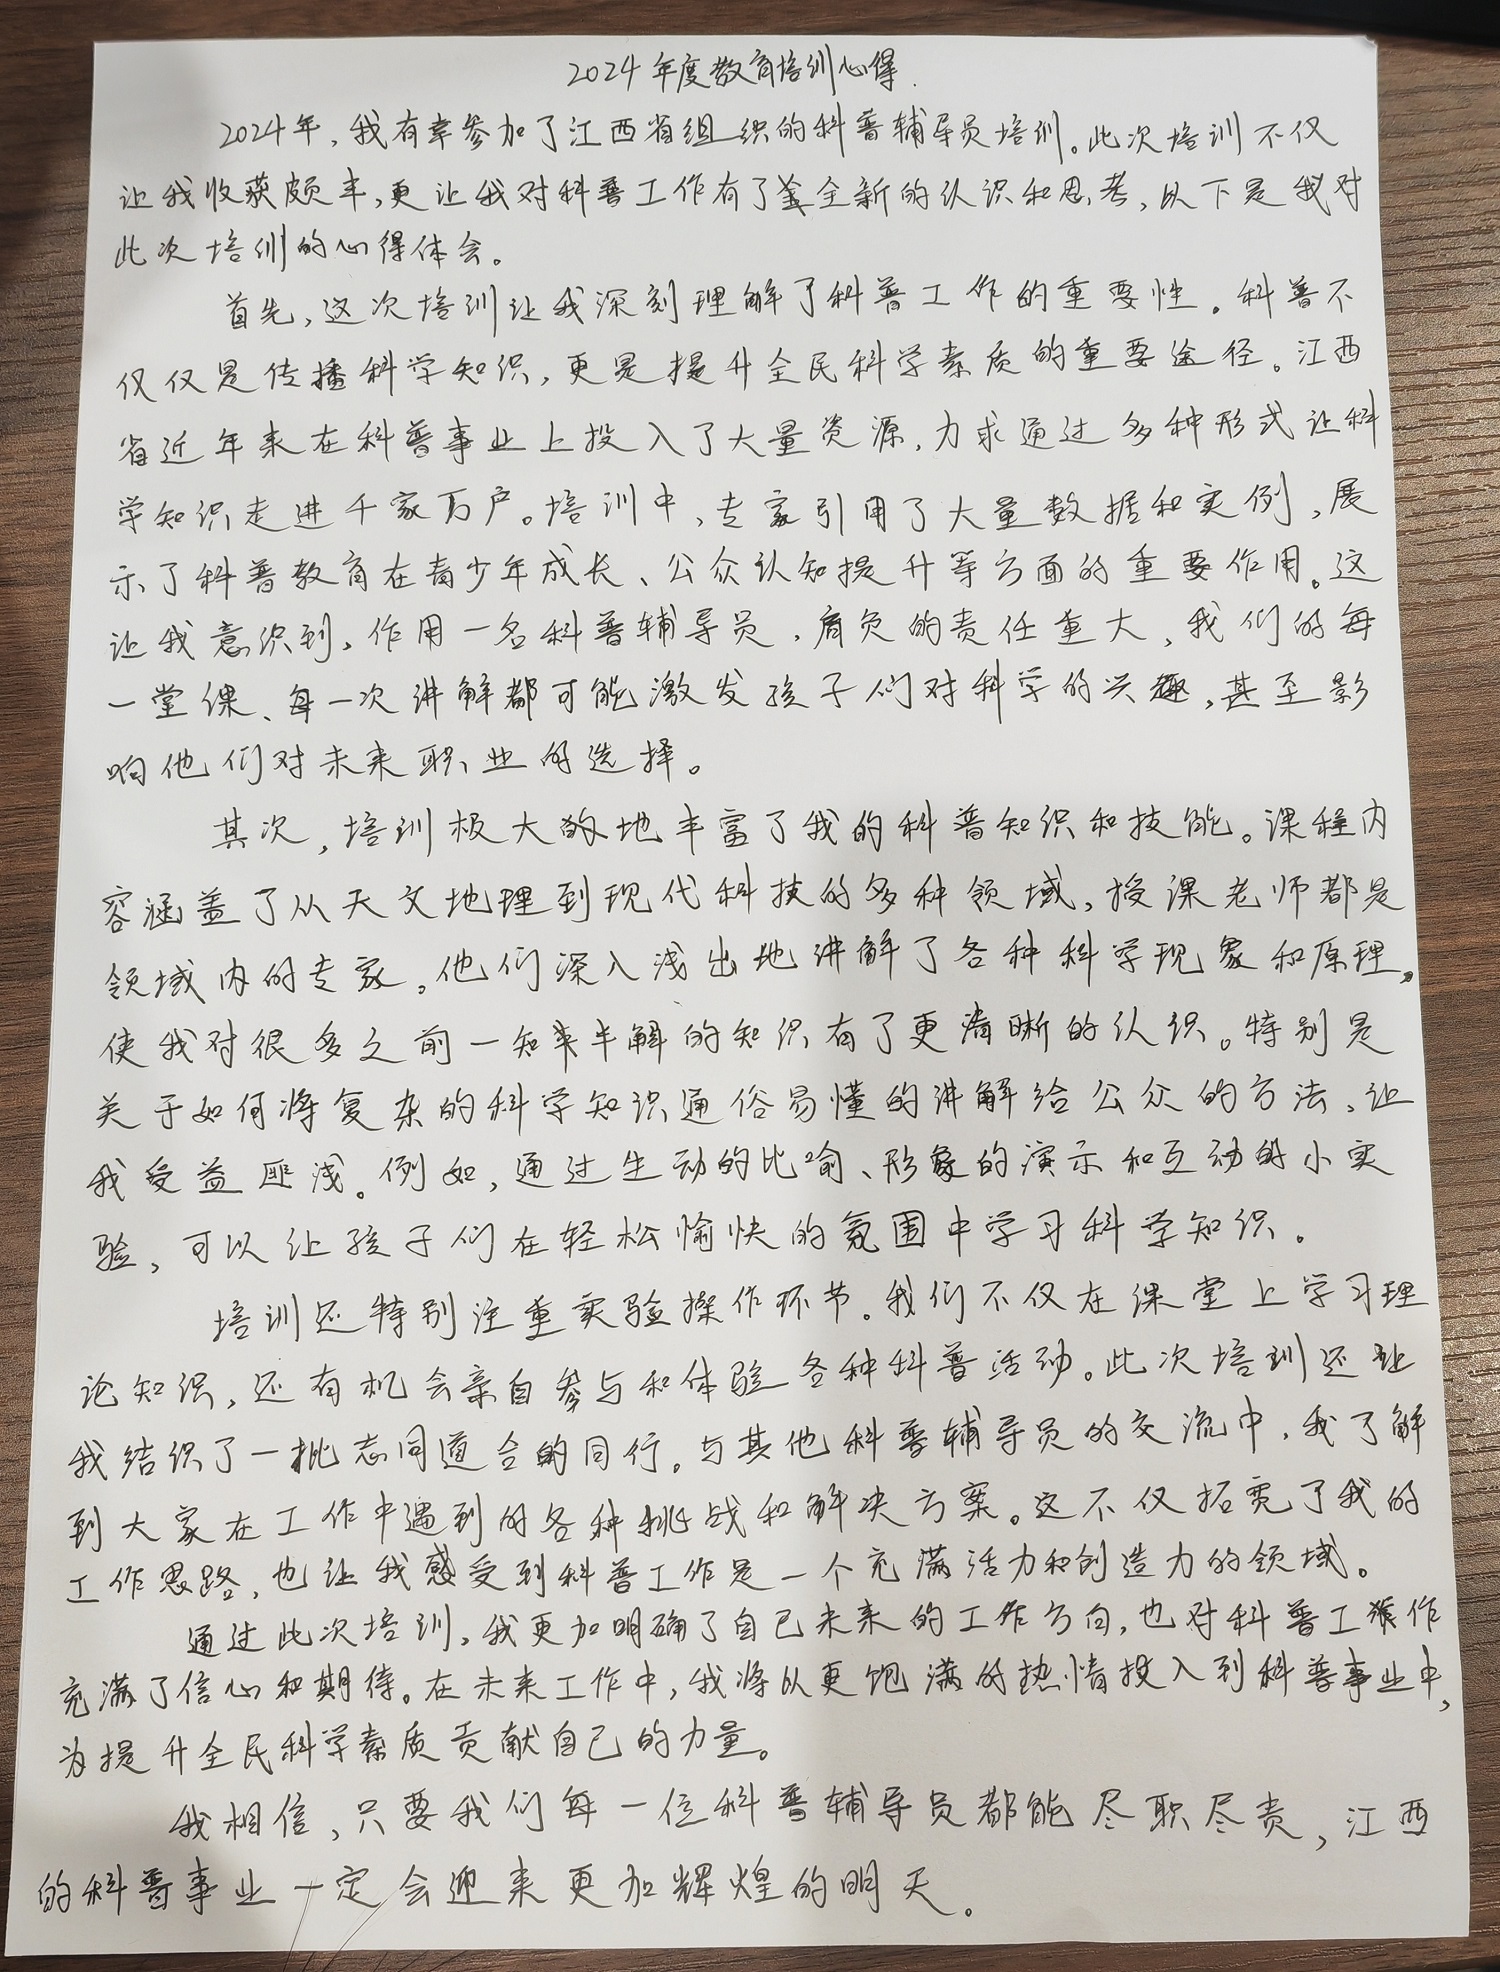 2024年度教育培训心得.
2024年，我有幸参加了江西省组织的科普辅导员培训。此次培训不仅
让我收获颇丰，更让我对科普工作有了全新的认识和思考，以下是我对
此次培训的心得体会。
首先，这次培训让我深刻理解了科普工作的重要性。科普不
仅仅是传播科学知识，更是提升全民科学素质的重要途径。江西
省近年来在科普事业上投入了大量资源，力求通过多种形式让科
学知识走进千家万户。培训中，专家引用了大量数据和实例，展
示了科普教育在青少年成长、公众认知提升等方面的重要作用。这
让我意识到，作用一名科普辅导员，肩负的责任重大，我们的每
一堂课、每一次讲解都可能激发孩子们对科学的兴趣，甚至影
响他们对未来职业的选择。
其次，培训极大的地丰富了我的科普知识和技能。课程内
容涵盖了从天文地理到现代科技的多种领域，授课老师都是
领域内的专家。他们深入浅出地讲解了各种科学现象和原理，
使我对很多之前一知半解的知识有了更清晰的认识。特别是
关于如何将复杂的科学知识通俗易懂的讲解给公众的方法，让
我受益匪浅。例如，通过生动的比喻、形象的演示和互动的小实
验，可以让孩子们在轻松愉快的氛围中学习科学知识。
培训还特别注重实验操作环节。我们不仅在课堂上学习理
论知识，还有机会亲自参与和体验各种科普活动。此次培训还让
我结识了一批志同道合的同行。与其他科普辅导员的交流中，我了解
到大家在工作中遇到的各种挑战和解决方案。这不仅拓宽了我的
工作思路，也让我感受到科普工作是一个充满活力和创造力的领域。
通过此次培训，我更加明确了自己未来的工作方向，也对科普工作
充满了信心和期待。在未来工作中，我将以更饱满的热情投入到科普事业中，
为提升全民科学素质贡献自己的力量。
我相信，只要我们每一位科普辅导员都能尽职尽责，江西
的科普事业一定会迎来更加辉煌的明天。